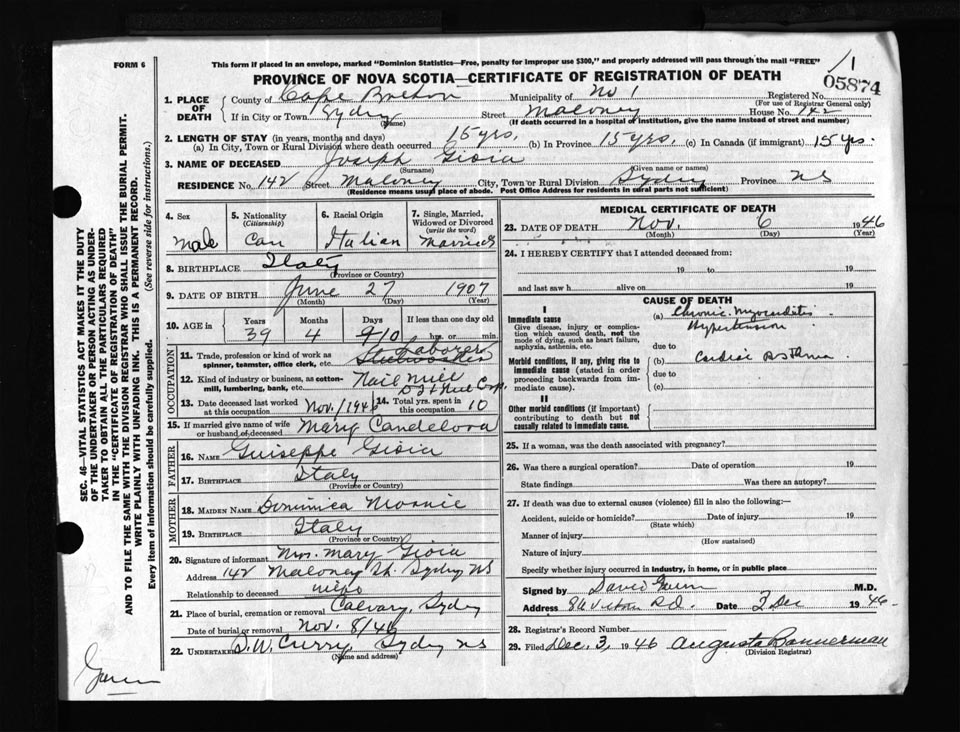 FORM 6
This form if placed in an envelope, marked "Dominion Statistics—Free, penalty for improper use $300," and properly addressed will pass through the mail "FREE"
1
05874
PROVINCE OF NOVA SCOTIA—CERTIFICATE OF REGISTRATION OF DEATH
1. PLACE OF DEATH
County of Cape Breton Municipality of No 1 Registered No.
(For use of Registrar General only)
If in City or Town Sydney Street Maloney House No. 142
(Name) (If death occurred in a hospital of institution, give the name instead of street and number)
2. LENGTH OF STAY (in years, months and days)
(a) In City, Town or Rural Division where death occurred 15 yrs. (b) In Province 15 yrs. (c) In Canada (if immigrant) 15 yrs.
3. NAME OF DECEASED Joseph Gioia
(Surname) (Given name or names)
RESIDENCE No. 142 Street Maloney City, Town or Rural Division Sydney Province NS
(Residence means usual place of abode. Post Office Address for residents in rural parts not sufficient)
4. Sex Male
5. Nationality (Citizenship) Can
6. Racial Origin Italian
7. Single, Married, Widowed or Divorced (write the word) Married
8. BIRTHPLACE Italy
(Province or Country)
9. DATE OF BIRTH June 27 1907
(Month) (Day) (Year)
10. AGE in Years Months Days If less than one day old
39 4 910 hrs. or min.
OCCUPATION
11. Trade, profession or kind of work as spinner, teamster, office clerk, etc. Laborer
12. Kind of industry or business, as cotton-mill, lumbering, bank, etc. Nail Mill
13. Date deceased last worked at this occupation Nov./1946
14. Total yrs. spent in this occupation 10
15. If married give name of wife or husband of deceased Mary Candelora
FATHER
16. NAME Guiseppe Gioia
17. BIRTHPLACE Italy
(Province or Country)
MOTHER
18. MAIDEN NAME Dominica
19. BIRTHPLACE Italy
(Province or Country)
20. Signature of informant Mrs. Mary Gioia
Address 142 Maloney St. Sydney NS
Relationship to deceased
21. Place of burial, cremation or removal Calvary, Sydney
Date of burial or removal Nov. 8/46
22. UNDERTAKER D.W. Curry Sydney NS
(Name and address)
MEDICAL CERTIFICATE OF DEATH
23. DATE OF DEATH Nov. 6 1946
(Month) (Day) (Year)
24. I HEREBY CERTIFY that I attended deceased from:
19 to 19
and last saw h alive on 19
CAUSE OF DEATH
I
Immediate cause
Give disease, injury or complication which caused death, not the mode of dying, such as heart failure, asphyxia, asthenia, etc.
(a) Chronic Myocarditis
Hypertension
due to
Morbid conditions, if any, giving rise to immediate cause (stated in order proceeding backwards from immediate cause).
(b) Cardiac Asthma
due to
(c)
II
Other morbid conditions (if important) contributing to death but not causally related to immediate cause.
25. If a woman, was the death associated with pregnancy?
26. Was there a surgical operation? Date of operation 19
State findings Was there an autopsy?
27. If death was due to external causes (violence) fill in also the following:—
Accident, suicide or homicide? Date of injury 19
(State which)
Manner of injury
(How sustained)
Nature of injury
Specify whether injury occurred in industry, in home, or in public place
Signed by David M.D.
Address Date 2 Dec 1946
28. Registrar's Record Number
29. Filed Dec. 3, 1946 Augusta Bannerman
(Division Registrar)
SEC. 46—VITAL STATISTICS ACT MAKES IT THE DUTY
OF THE UNDERTAKER OR PERSON ACTING AS UNDER-
TAKER TO OBTAIN ALL THE PARTICULARS REQUIRED
IN THE "CERTIFICATE OF REGISTRATION OF DEATH"
AND TO FILE THE SAME WITH THE DIVISION REGISTRAR WHO SHALL ISSUE THE BURIAL PERMIT.
WRITE PLAINLY WITH UNFADING INK. THIS IS A PERMANENT RECORD.
Every item of information should be carefully supplied. (See reverse side for instructions.)